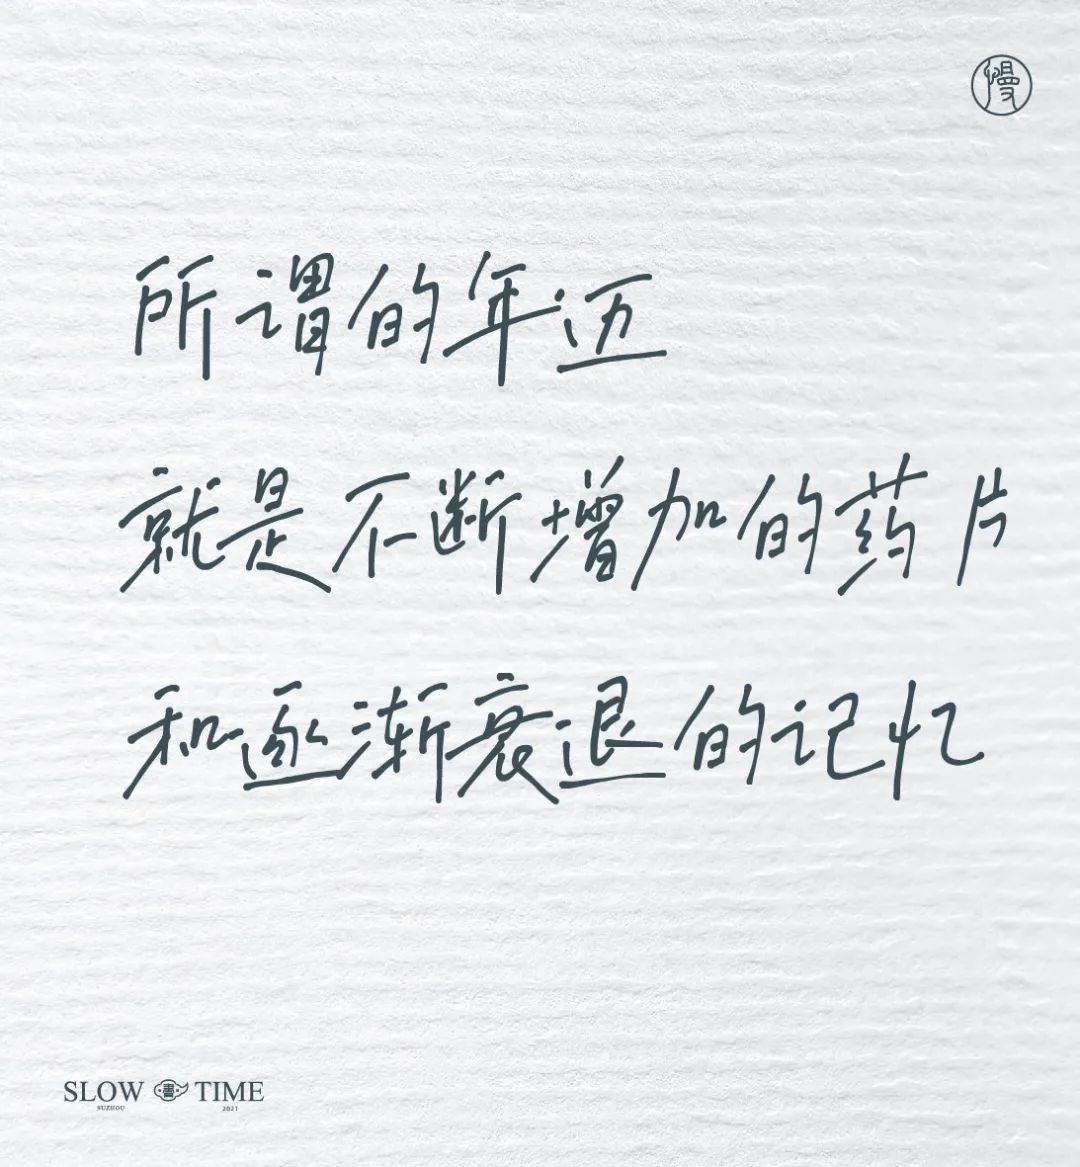 慢
所谓的年迈
就是不断增加的药片
和逐渐衰退的记忆
SLOW 書 TIME
SUZHOU 2021